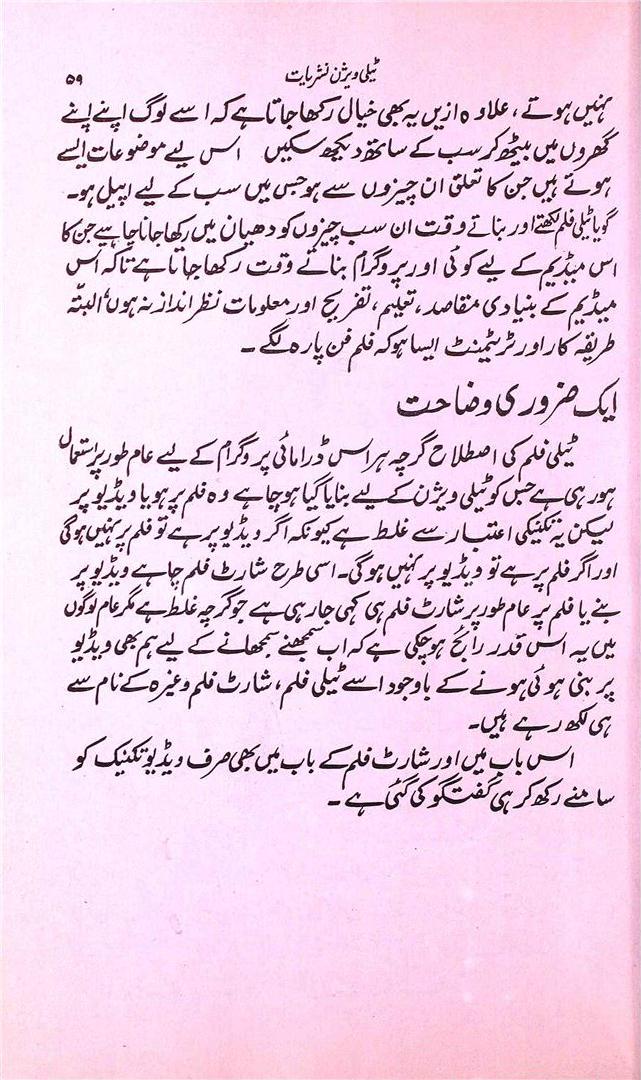 ٹیلی ویژن نشریات
۵۹
نہیں ہوتے، علاوہ ازیں یہ بھی خیال رکھا جاتا ہے کہ اسے لوگ اپنے اپنے
گھروں میں بیٹھ کر سب کے ساتھ دیکھ سکیں اس لیے موضوعات ایسے
ہوتے ہیں جن کا تعلق ان چیزوں سے ہو جس میں سب کے لیے اپیل ہو۔
گویا ٹیلی فلم لکھتے اور بناتے وقت ان سب چیزوں کو دھیان میں رکھا جانا چاہیے جن کا
اس میڈیم کے لیے کوئی اور پروگرام بناتے وقت رکھا جاتا ہے تاکہ اس
میڈیم کے بنیادی مقاصد، تعلیم، تفریح اور معلومات نظر انداز نہ ہوں، البتّہ
طریقہ کار اور ٹریٹمنٹ ایسا ہو کہ فلم فن پارہ لگے۔
ایک ضروری وضاحت
ٹیلی فلم کی اصطلاح گرچہ ہر اس ڈرامائی پروگرام کے لیے عام طور پر استعمال
ہو رہی ہے جس کو ٹیلی ویژن کے لیے بنایا گیا ہو چاہے وہ فلم پر ہو یا ویڈیو پر
لیکن یہ تکنیکی اعتبار سے غلط ہے کیونکہ اگر ویڈیو پر ہے تو فلم پر نہیں ہوگی
اور اگر فلم پر ہے تو ویڈیو پر نہیں ہوگی۔ اسی طرح شارٹ فلم چاہے ویڈیو پر
بنے یا فلم پر عام طور پر شارٹ فلم ہی کہی جا رہی ہے جو گرچہ غلط ہے مگر عام لوگوں
میں یہ اس قدر رائج ہو چکی ہے کہ اب سمجھنے سمجھانے کے لیے ہم بھی ویڈیو
پر بنی ہوئی ہونے کے باوجود اسے ٹیلی فلم، شارٹ فلم وغیرہ کے نام سے
ہی لکھ رہے ہیں۔
اس باب میں اور شارٹ فلم کے باب میں بھی صرف ویڈیو تکنیک کو
سامنے رکھ کر ہی گفتگو کی گئی ہے۔